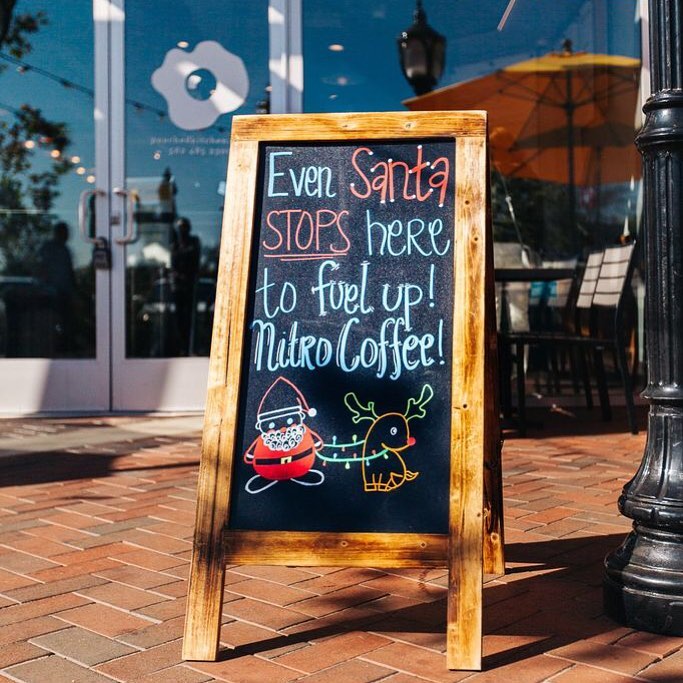 Even Santa
STOPS here
to fuel up!
Nitro Coffee!